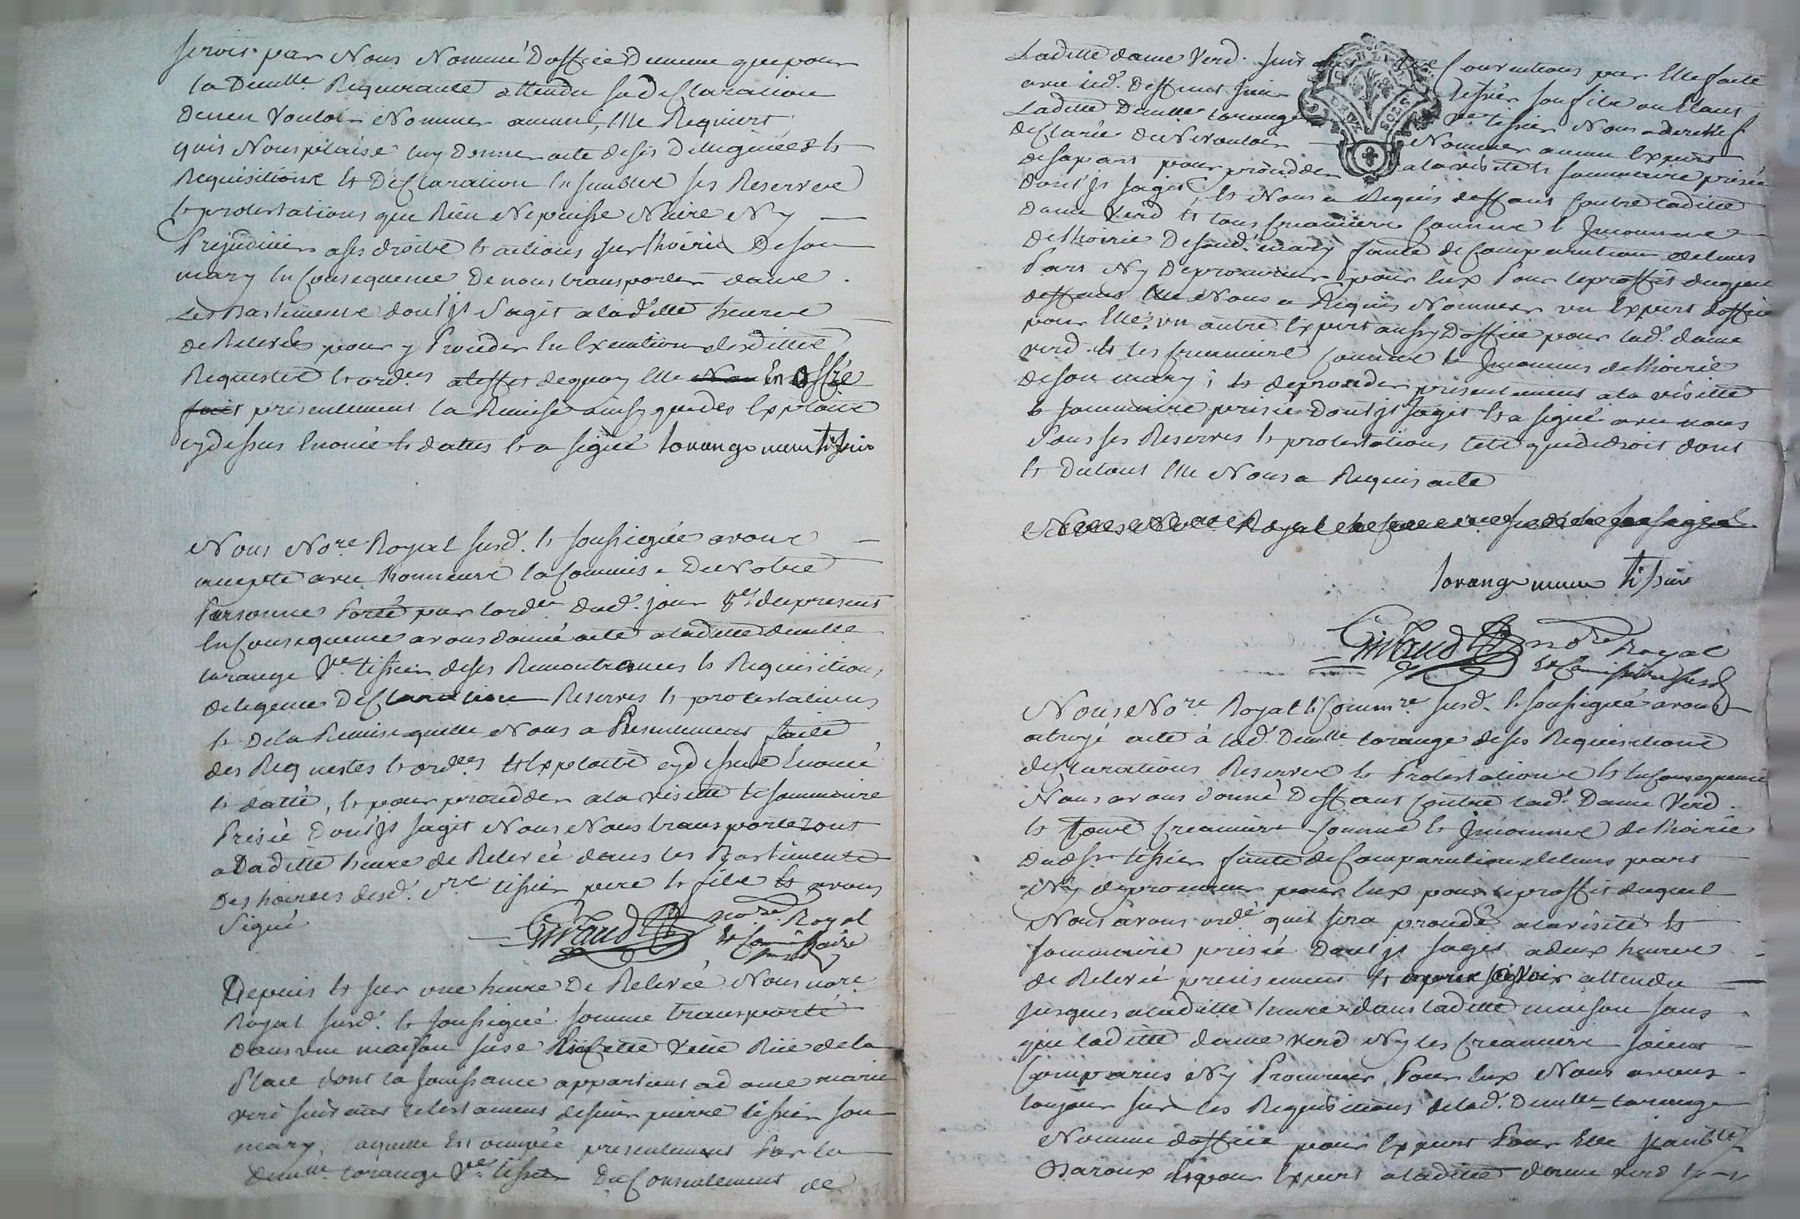 servir par Nous Nommé D'office De meme que pour
la Demlle Requerante attendu sa declaration
De n'en Vouloir Nommer aucun, Elle Requiert
qu'il Nous plaise luy Donner acte de ses Diligences &
Requisitions & Declaration Ensemble ses Reserves
& protestations que Rien Ne puisse Nuire Ny
Prejudicier a ses droits & actions sur l'hoirie De son
mary En Consequence De nous transporter dans
Les Bastiments dont Il S'agit a lad. Heure
De Relevée pour y Proceder En Execution desdittes
Requestes & ordces a l'effet de quoy Elle En a Offre
fait presentement la Remise ainsy que des Exploits
cy dessus Enoncés & dattés & a signé lorange veuve tissier
Nous Nore Royal susd. & soussigné avons
accepté avec honneur la Commis. De Notre
Personne Porté par l'ordce dud. jour 8e du present
En Consequence avons donné acte a laditte Demlle
lorange Ve tissier de ses Remontrances & Requisitions
deligences Declaration Reserves & protestations
& De la Remise quelle Nous a Presentement faite
des Requestes & ordces & Exploits cy dessus Enoncé
& datté, & pour proceder a la visitte & sommaire
Prisée Dont Il sagit Nous Nous transporterons
a Laditte heure de Relevée dans les Bastiments
Des hoiries desd. Srs tissier pere & fils & avons
Signé
Giraud nore Royal
& Commissaire
Depuis & sur une heure De Relevée Nous nore
Royal susd. & soussigné somme transporté
dans une maison size Ruë de la
Place dont la Jouissance appartient a dame marie
verd suivant le testament de feu pierre tissier son
mary, laquelle Est occupée presentement Par la
demlle lorange Ve tissier Du Consentement de
Laditte dame Verd. suiv. Conventions par Elle faite
avec led. Deffunt sieur tissier son fils ou Etant
Laditte Demlle lorange Ve tissier Nous a derechef
Declarée De Ne Vouloir Nommer aucun Expert
de sa part pour proceder a la visite & sommaire prisée
Dont Il sagit, & Nous a Requis deffaut Contre laditte
dame Verd & tous Creanciers Connus & Inconnus
de l'hoirie De feu d. mary faute de Comparution de leurs
Parts Ny De procureur pour Eux Pour le proffit duquel
deffaut Elle Nous a Requis Nommer un Expert d'office
pour Elle, un autre Expert aussy D'office pour lad. dame
verd & les Creanciers Connus & Inconnus de l'hoirie
de son mary; & de proceder presentement a la visitte
& sommaire prisée dont Il sagit & a signé avec nous
Sous ses Reserves & protestations telles que de droit dont
& Du tout Elle Nous a Requis acte
lorange veuve tissier
Giraud nore Royal
& Commissaire susd
Nous Nore Royal & Commre susd. & soussigné avons
octroyé acte à lad. Demlle lorange de ses Requisitions
declarations Reserves & Protestations & En Consequence
Nous avons donné Deffaut Contre lad. Dame Verd
& tous Creanciers Connus & Inconnus de l'hoirie
dud. Sr tissier faute de Comparution de leurs parts
Ny de procureur pour Eux pour le proffit duquel
Nous avons ordé qu'il sera procedé a la visite &
sommaire prisée Dont Il sagit a deux heures
de Relevée precisement & apres avoir attendu
jusques a laditte heure dans laditte maison sans
que laditte dame verd Ny les Creanciers soient
Comparus Ny Procureur Pour Eux Nous avons
toujour sur les Requisitions de lad. Demlle lorange
Nommé d'office pour Expert Pour Elle
& pour Expert a laditte dame verd &